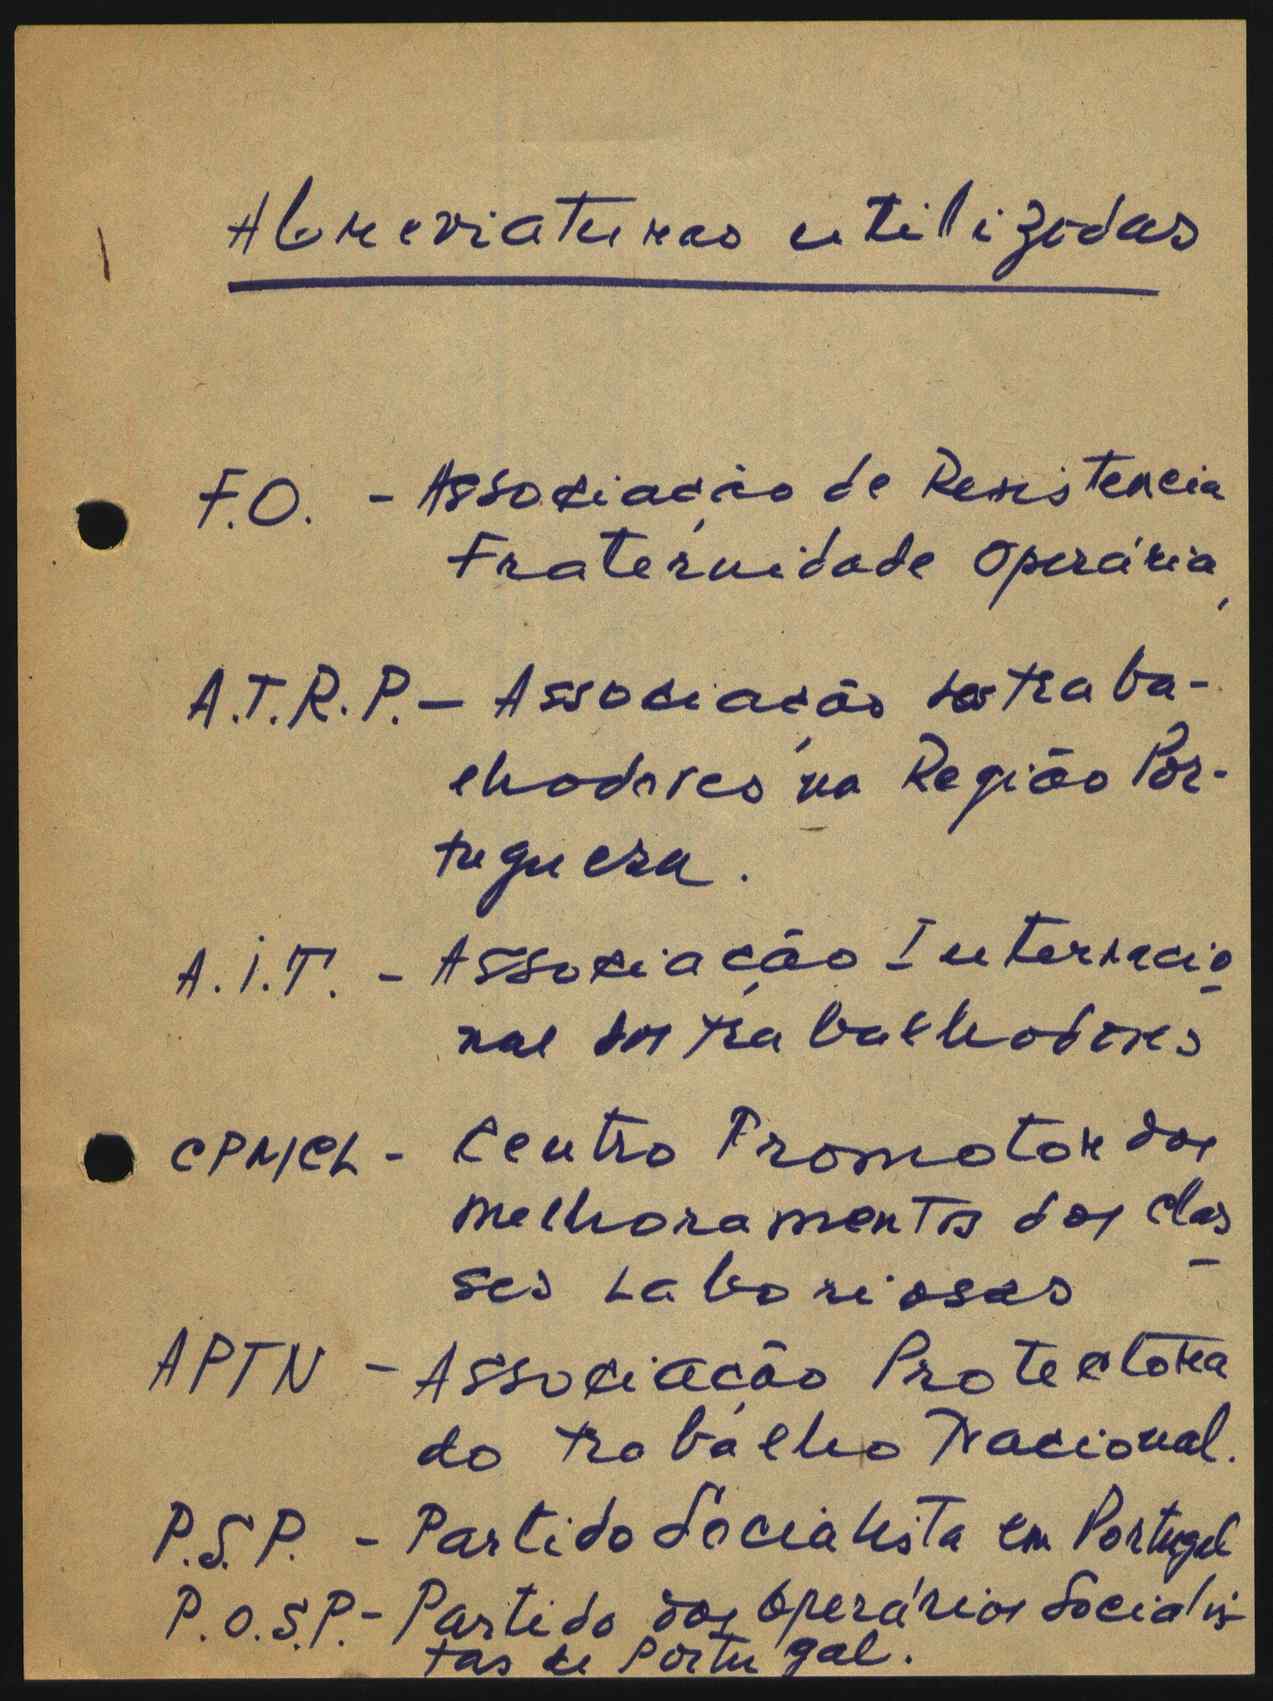 Abreviaturas utilizadas
F.O. - Associação de Resistencia
Fraternidade Operária
A.T.R.P. - Associação dos traba-
lhadores na Região Por-
tuguesa.
A.I.T. - Associação Internacio
nal dos trabalhadores
CPMCL - Centro Promotor dos
melhoramentos das clas
ses Laboriosas
APTN - Associação Protectora
do trabalho Nacional.
P.S.P. - Partido Socialista em Portugal
P.O.S.P. - Partido dos Operários Socialis-
tas de Portugal.